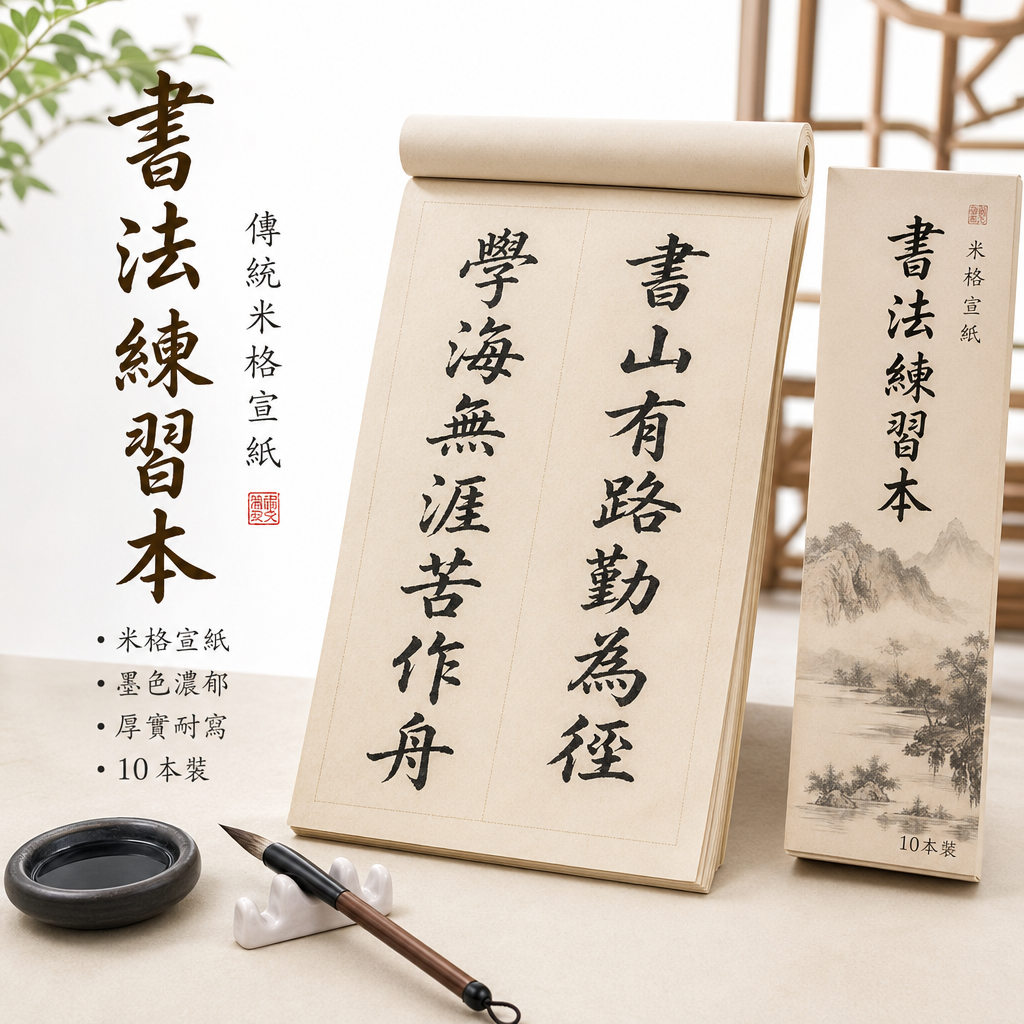 書法練習本
傳統米格宣紙
• 米格宣紙
• 墨色濃郁
• 厚實耐寫
• 10本裝
書山有路勤為徑
學海無涯苦作舟
米格宣紙
書法練習本
10本裝